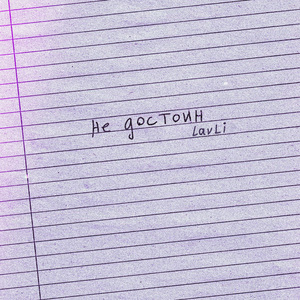 не достоин
Lavli